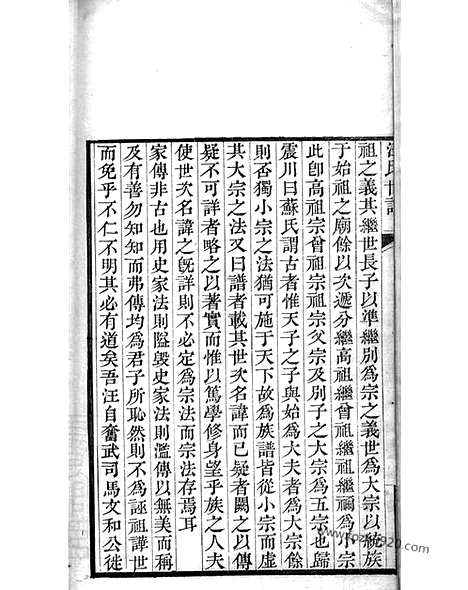 汪氏世譜
祖之義其繼世長子以準繼別為宗之義世為大宗以統族
于始祖之廟餘以次遞分繼高祖繼曾祖繼祖繼禰為小宗
此卽高祖宗曾祖宗祖宗父宗及別子之大宗為五宗也歸
震川曰蘇氏謂古者惟天子之子與始為大夫者為大宗餘
則否獨小宗之法猶可施于天下故為族譜皆從小宗而虛
其大宗之法又曰譜者載其世次名諱而已疑者闕之以傳
疑不可詳者略之以著實而惟以篤學修身望乎族之人夫
使世次名諱之旣詳則不必定為宗法而宗法存焉耳
家傳非古也用史家法則隘毀史家法則濫傳以無美而稱
及有善勿知知而弗傳均為君子所恥然則不為誣祖譁世
而免乎不仁不明其必有道矣吾汪自奮武司馬文和公徙